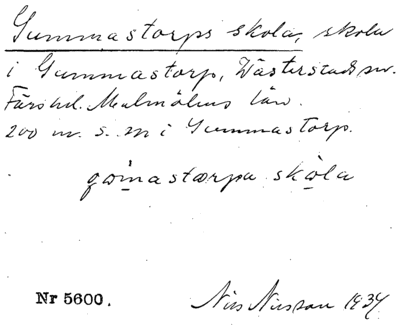 Gummastorps skola, skola
i Gummastorp, Västerstads sn.
Färs hd. Malmöhus län.
200 m. s. m i Gummastorp.
skola
Nr 5600.
Nils Nilsson 1934